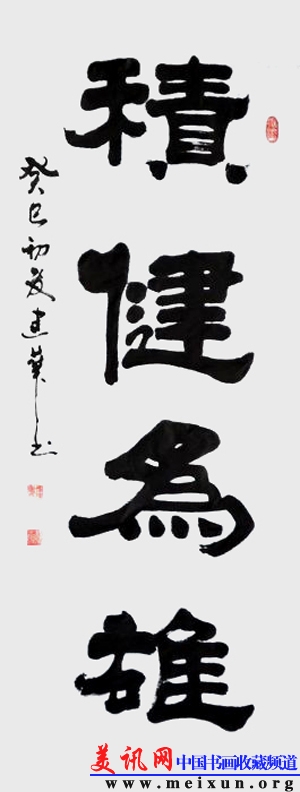 積健為雄
癸巳初夏建華書
美讯网 中国书画收藏频道
www.meixun.org